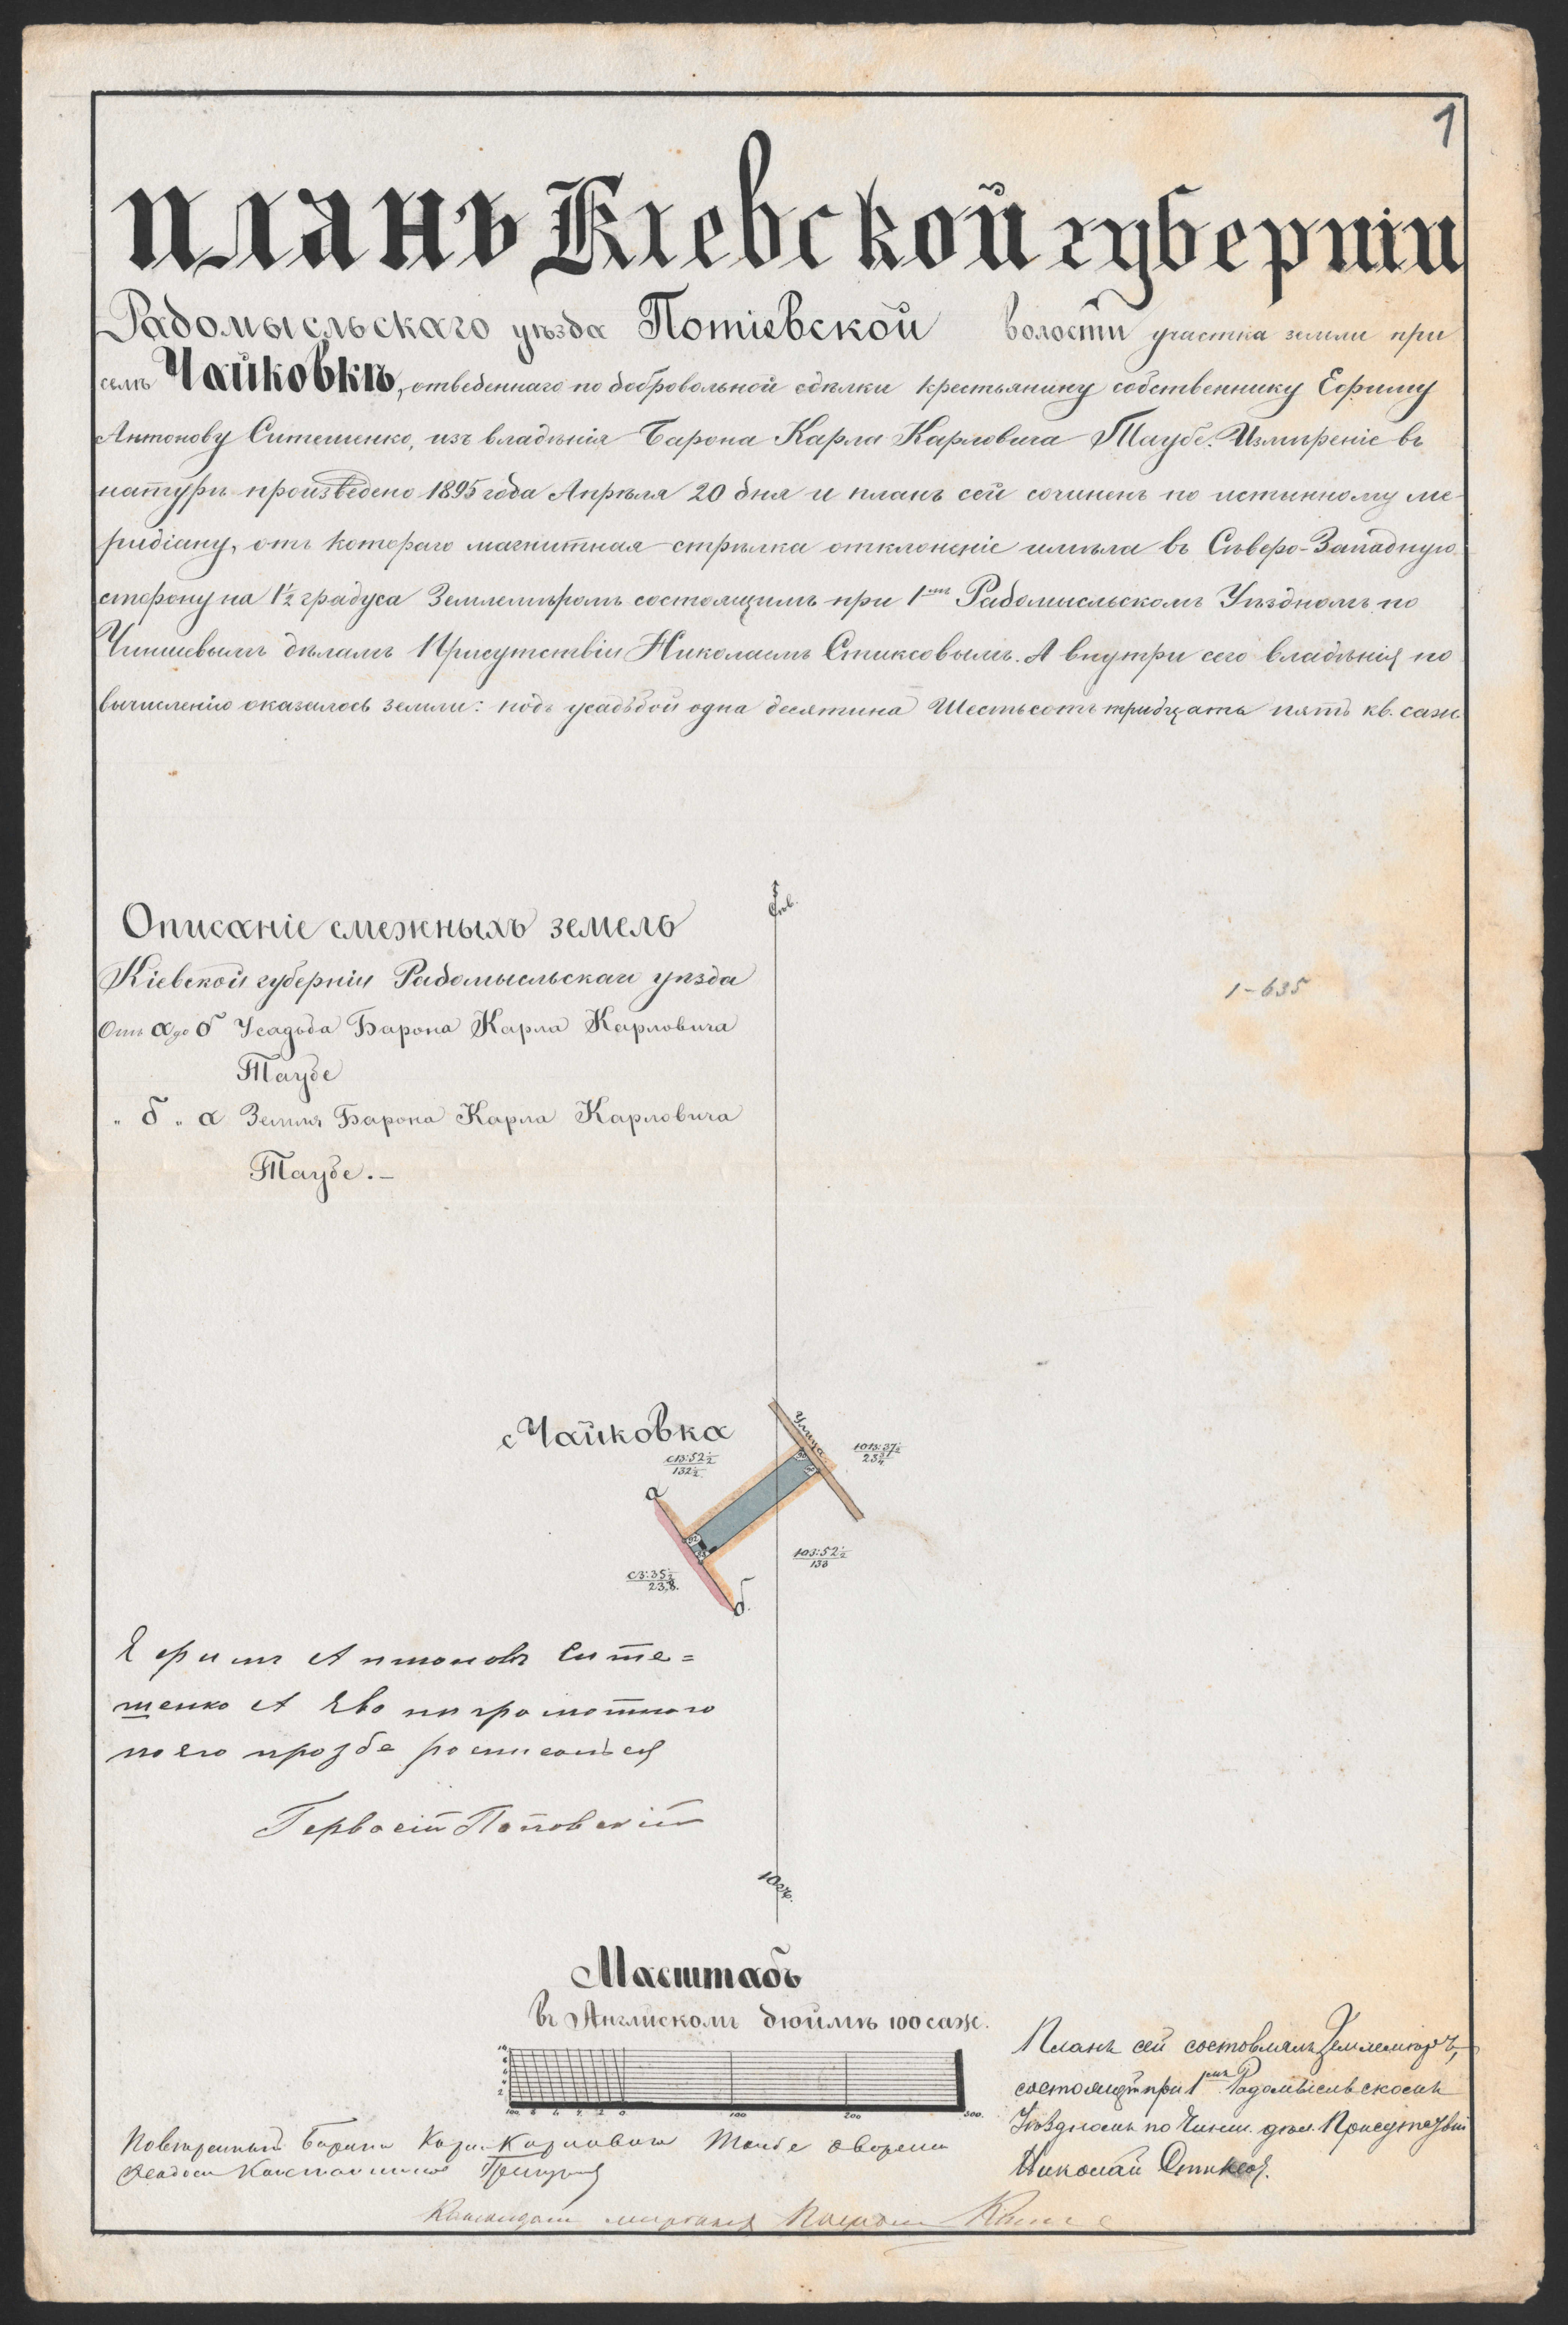 1
Планъ Кіевской губерніи
Радомысльскаго уѣзда Потіевской волости участка земли при
селѣ Чайковкѣ, отведеннаго по добровольной сдѣлки крестьянину собственнику Ефиму
Антонову Ситешенко, изъ владѣнія Барона Карла Карловича Таубе. Измѣреніе въ
натурѣ произведено 1895 года Апрѣля 20 дня и планъ сей сочиненъ по истинному ме-
ридіану, отъ котораго магнитная стрѣлка отклоненіе имѣла въ Сѣверо-Западную
сторону на 1½ градуса Землемѣромъ состоящимъ при 1мъ Радомысльскомъ Уѣздномъ по
Чиншевымъ дѣламъ Присутствіи Николаемъ Стиксовымъ. А внутри сего владѣнія по
вычисленію оказалось земли: подъ усадьбой одна десятина Шестьсотъ тридцать пять кв. саж.
Сѣв.
Описаніе смежныхъ земель
Кіевской губерніи Радомысльскаго уѣзда
1-635
Отъ а до б Усадьба Барона Карла Карловича
Таубе
" б " а Земля Барона Карла Карловича
Таубе.-
с Чайковка
Улица
СВ:52½
132½
ЮВ:37½
23¾
а
ЮЗ:52½
133
СЗ:35½
23,8.
б.
Ефимъ Антоновъ Сите=
шенко А Ево ниграмотного
по его прозбе росписался
Гервасій Поповскій
Югъ.
Масштабъ
въ Англискомъ дюймѣ 100 саж.
100 8 6 4 2 0 100 200 300.
Планъ сей составлялъ Землемѣръ,
состоящій при 1мъ Радомысльскомъ
Уѣздномъ по Чинш. дѣл. Присутствіи
Николай Стиксовъ.
Повѣренный Барона Карла Карловича Таубе дворянин
Константинов